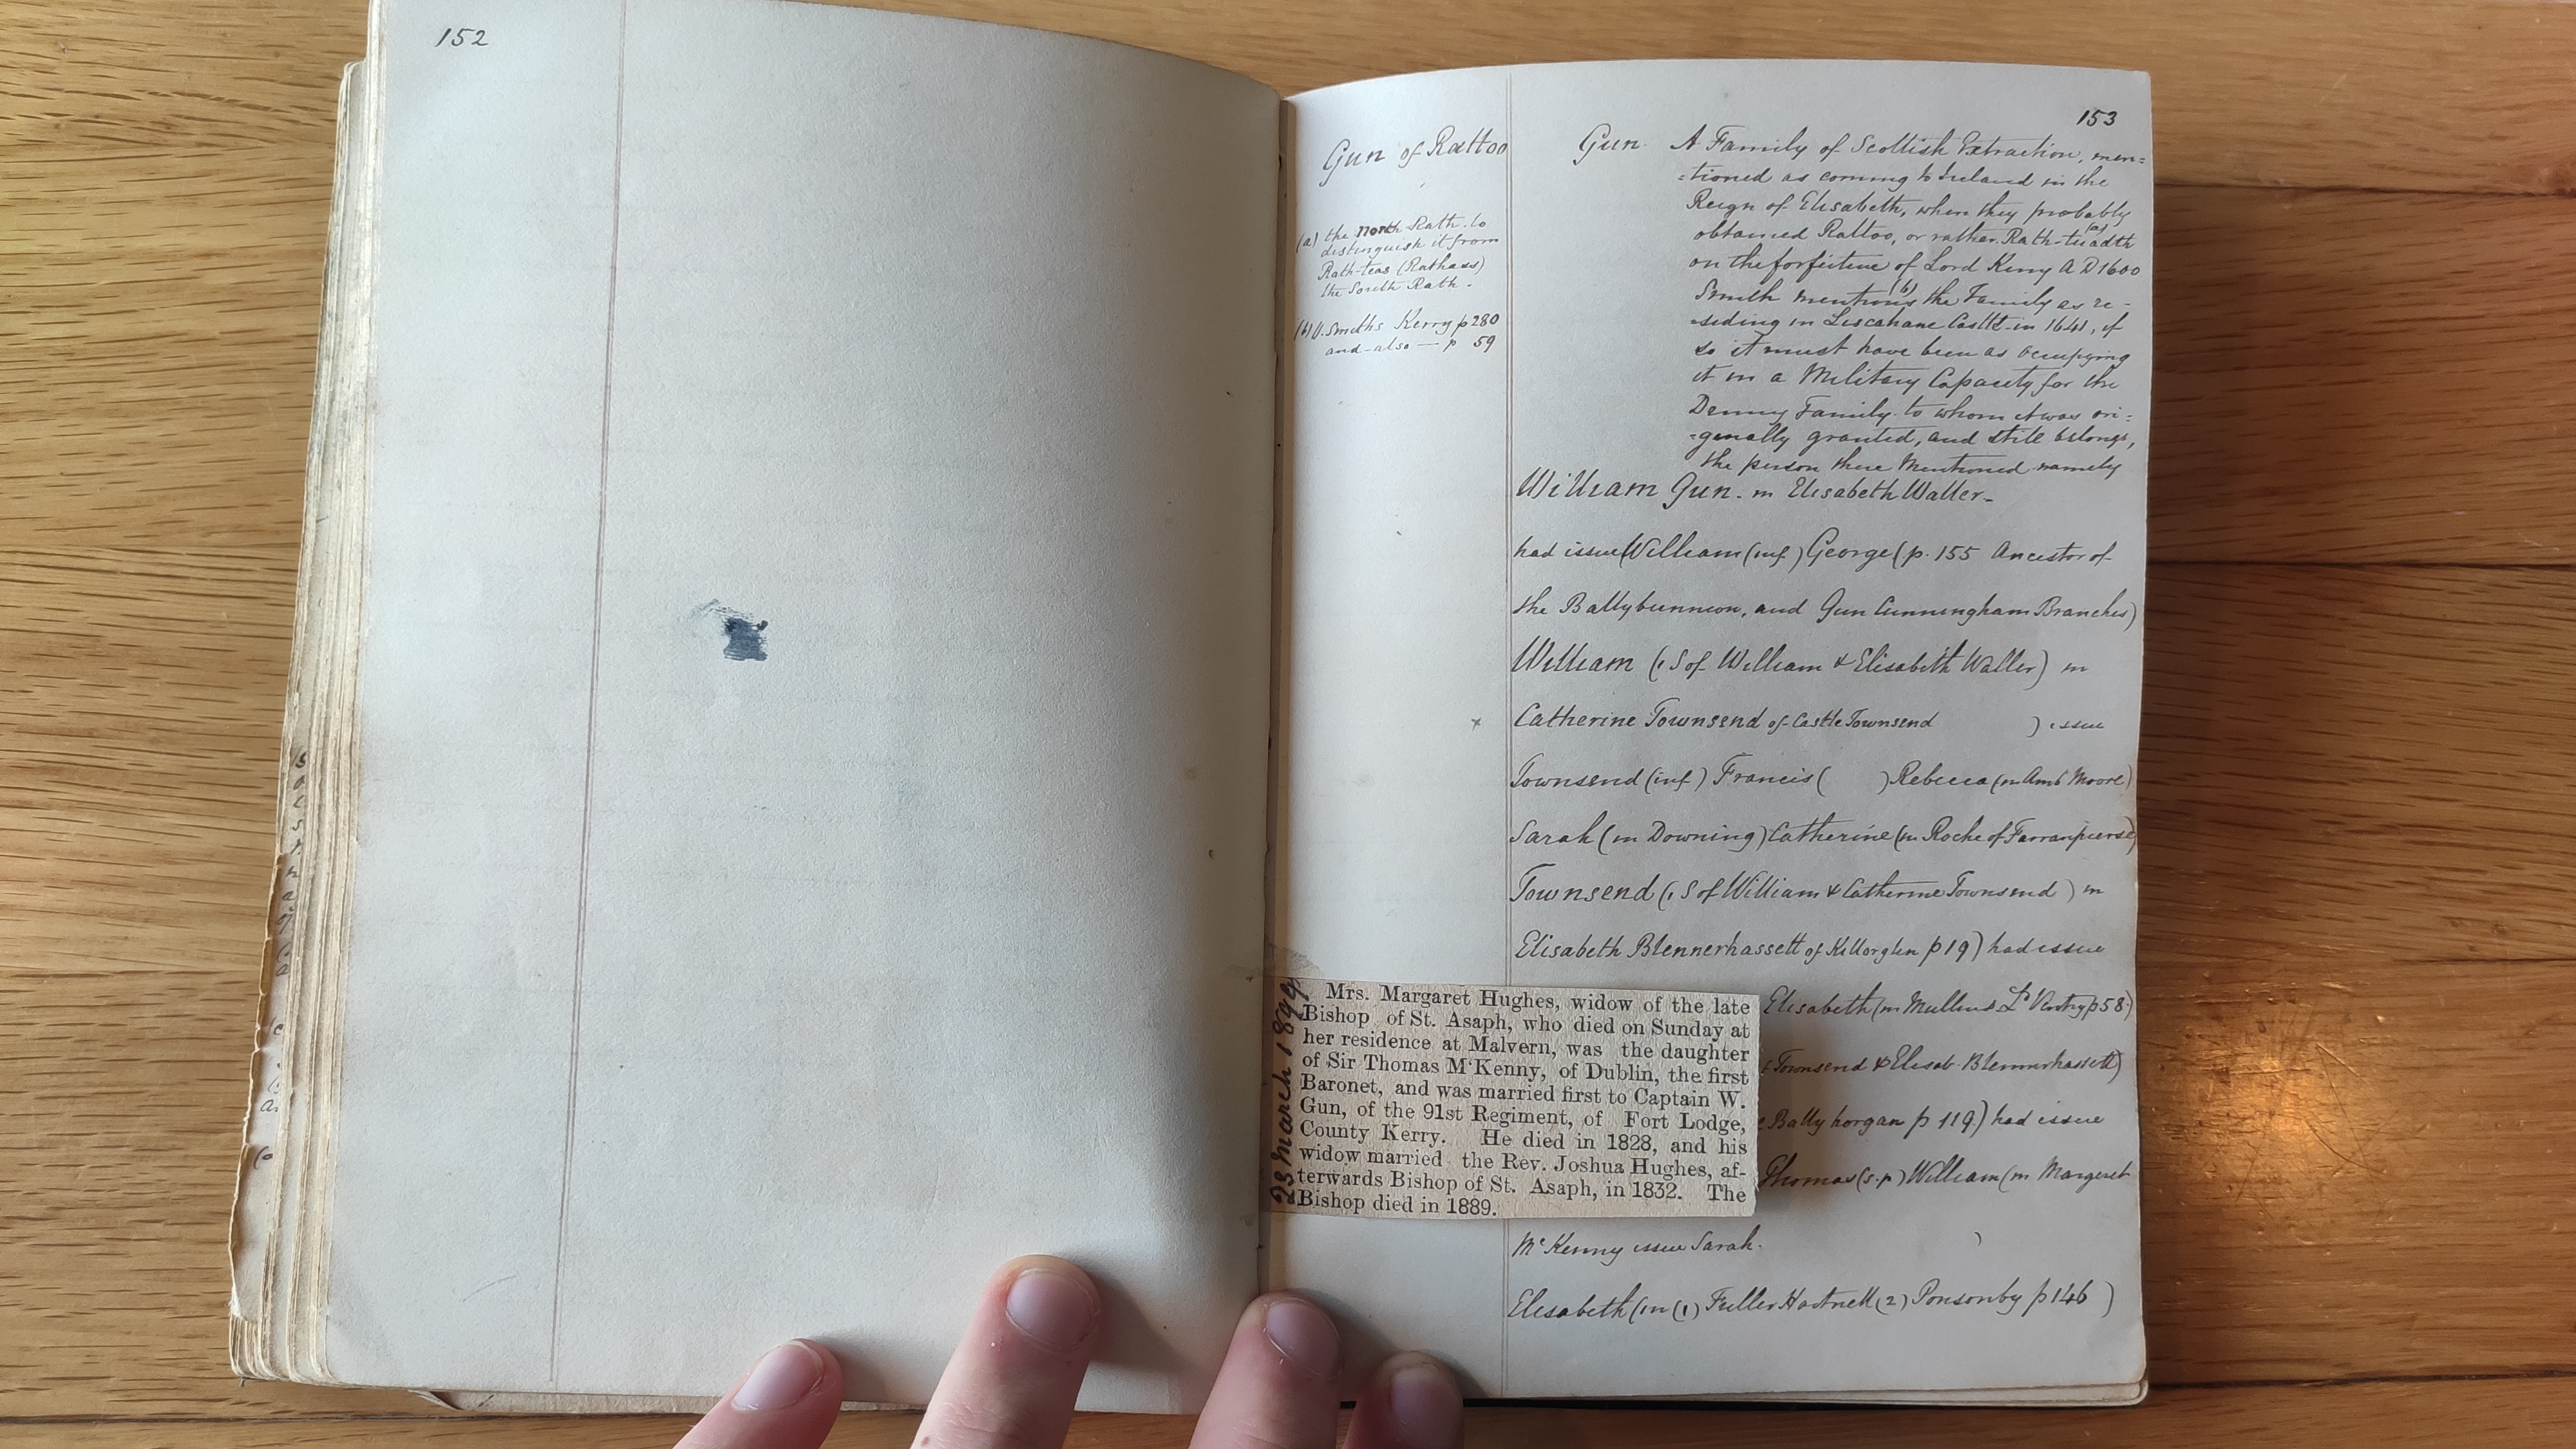 152
153
Gun of Rattoo
(a) the North Rath to
distinguish it from
Rath-teas (Rathass)
the South Rath.
(b) V. Smiths Kerry p 280
and also — p 59
Gun. A Family of Scottish Extraction, men=
=tioned as coming to Ireland in the
Reign of Elisabeth, when they probably
obtained Rattoo, or rather Rath-tuadth (a)
on the forfeiture of Lord Kerry A D 1600
Smith mentions (b) the Family as re-
-siding in Liscahane Castle in 1641, if
so it must have been as occupying
it in a Military Capacity for the
Denny Family to whom it was ori=
=ginally granted, and still belongs,
the person there Mentioned namely
William Gun. m Elisabeth Waller-
had issue William (inf) George (p. 155 Ancestor of
the Ballybunnion, and Gun Cunningham Branches)
William (1 S of William & Elisabeth Waller) m
x Catherine Townsend of Castle Townsend ) issue
Townsend (inf) Francis ( ) Rebecca (m Amb Moore)
Sarah (m Downing) Catherine (m Roche of Farranpierse)
Townsend (1 S of William & Catherine Townsend) m
Elisabeth Blennerhassett of Killorglen p 19) had issue
Elisabeth (m Mullins Ld Ventry p 58)
Townsend & Elisab. Blennerhassett)
Bally horgan p 119) had issue
Thomas (s.p) William (m Margeret
McKenny issue Sarah.
Elisabeth (m (1) Fuller Hartnell (2) Ponsonby p 146 )
23 March 1899
Mrs. Margaret Hughes, widow of the late
Bishop of St. Asaph, who died on Sunday at
her residence at Malvern, was the daughter
of Sir Thomas M'Kenny, of Dublin, the first
Baronet, and was married first to Captain W.
Gun, of the 91st Regiment, of Fort Lodge,
County Kerry. He died in 1828, and his
widow married the Rev. Joshua Hughes, af-
terwards Bishop of St. Asaph, in 1832. The
Bishop died in 1889.